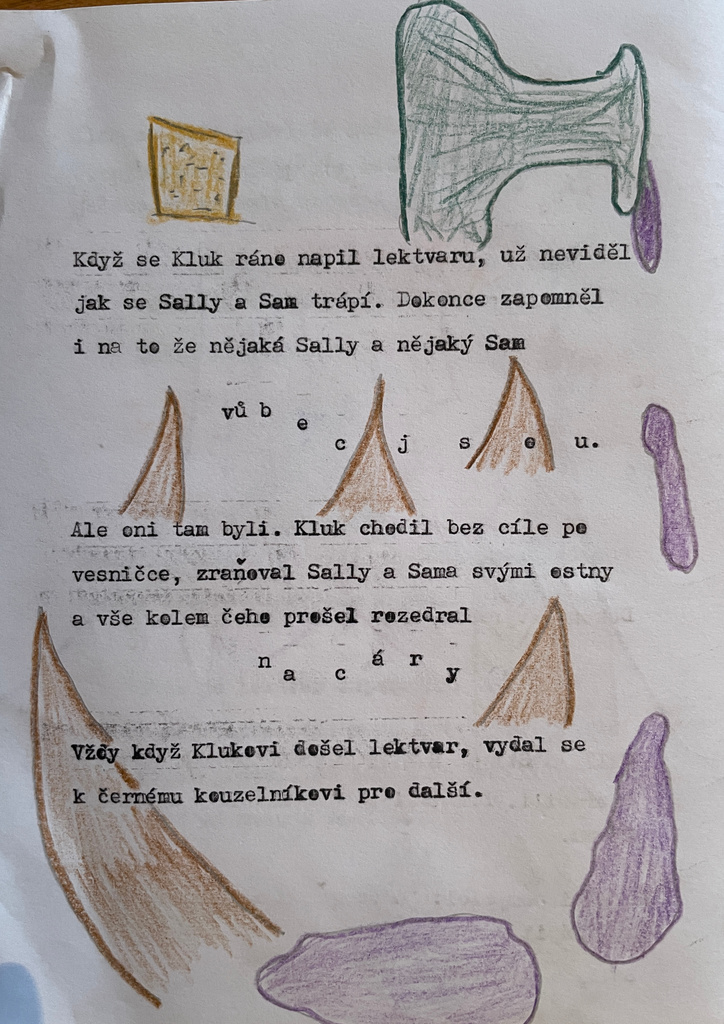 Když se Kluk ráno napil lektvaru, už neviděl
jak se Sally a Sam trápí. Dokonce zapomněl
i na to že nějaká Sally a nějaký Sam
vůbec jsou.
Ale oni tam byli. Kluk chodil bez cíle po
vesničce, zraňoval Sally a Sama svými ostny
a vše kolem čeho prošel rozedral
na cáry
Vždy když Klukovi došel lektvar, vydal se
k černému kouzelníkovi pro další.